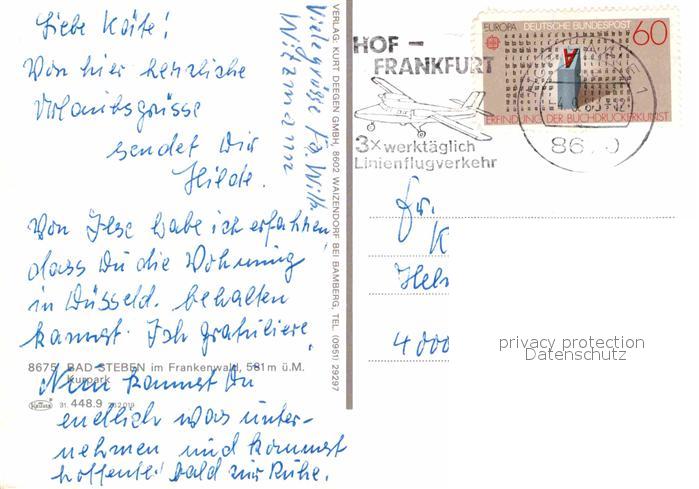 Liebe Käte!
Von hier herzliche
Urlaubsgrüsse
sendet Dir
Hilde.
Von Ilse habe ich erfahren,
dass Du die Wohnung
in Düsseld. behalten
kannst. Ich gratuliere!
8675 BAD STEBEN im Frankenwald, 581 m ü.M.
Kurpark
31. 448.9
Nun kannst Du
endlich was unter-
nehmen und kommst
hoffentl. bald zur Ruhe.
Viele grüsse
Witzmann
VERLAG: KURT DEEGEN GMBH, 8602 WAIZENDORF BEI BAMBERG, TEL. (0951) 29297
HOF –
FRANKFURT
3x werktäglich
Linienflugverkehr
EUROPA DEUTSCHE BUNDESPOST 60
ERFINDUNG DER BUCHDRUCKERKUNST
Fr.
K
Hel
4000
privacy protection
Datenschutz